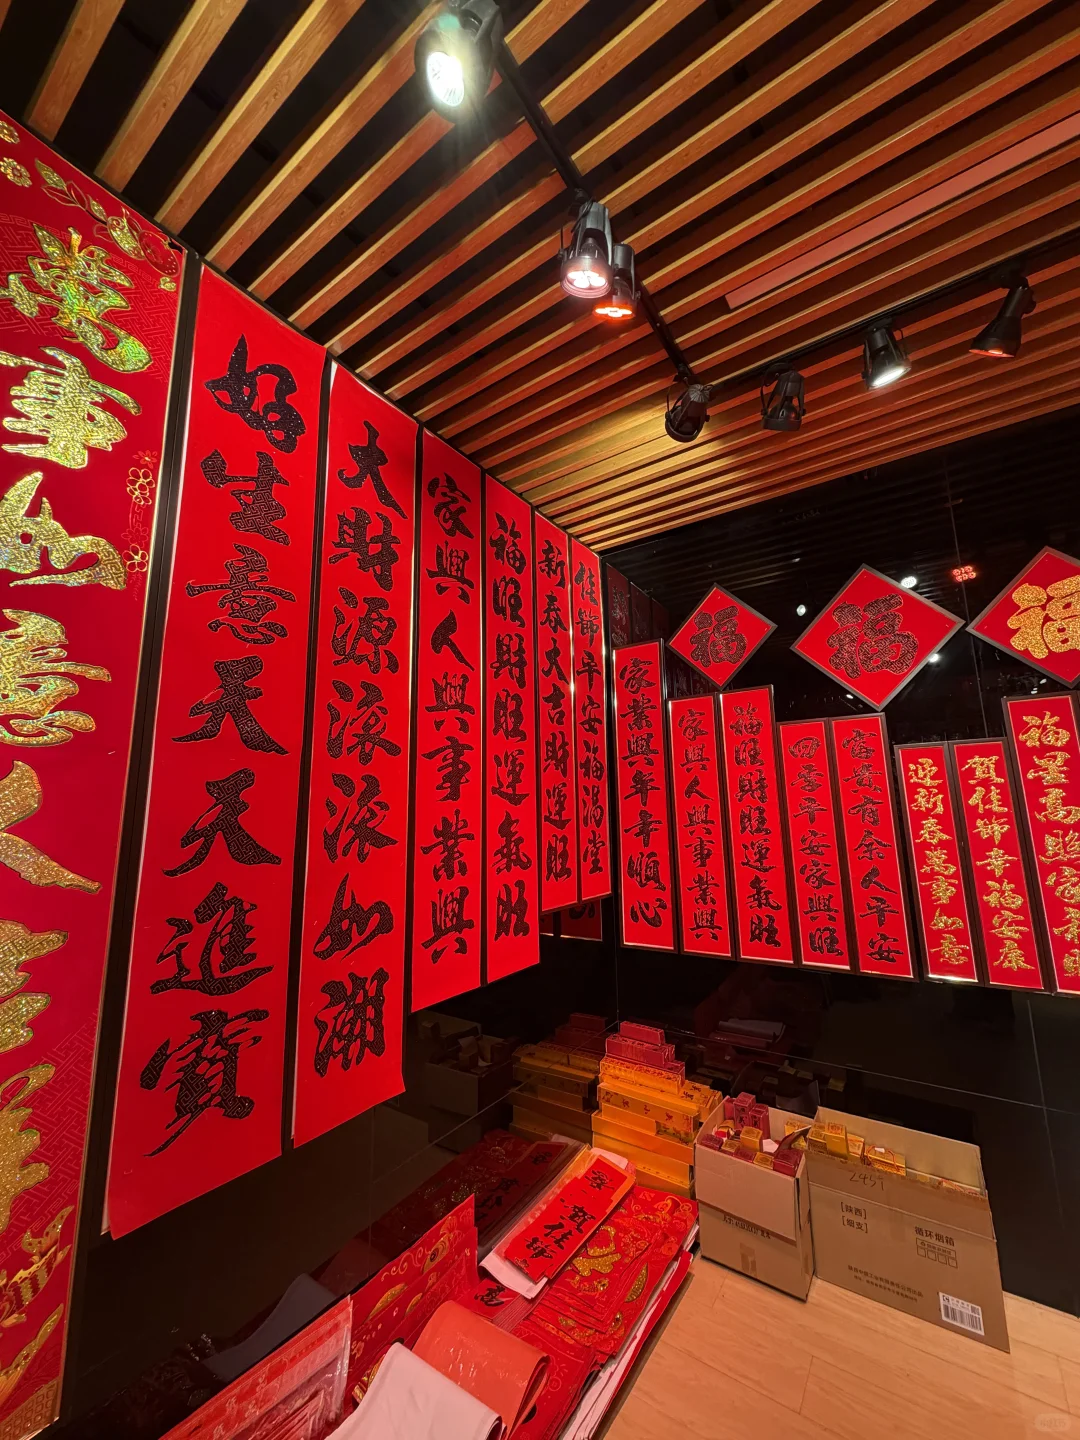 萬事如意人
好生意天天進寶
大財源滚滚如潮
家興人興事業興
福旺財旺運氣旺
新春大吉財運旺
佳節平安福满堂
家業興年年順心
家興人興事業興
福旺財旺運氣旺
四季平安家興旺
富貴有余人平安
迎新春萬事如意
賀佳節幸福安康
福星高照家
福
福
福
賀佳節
2459
[陕西]
[烟支]
循环烟箱